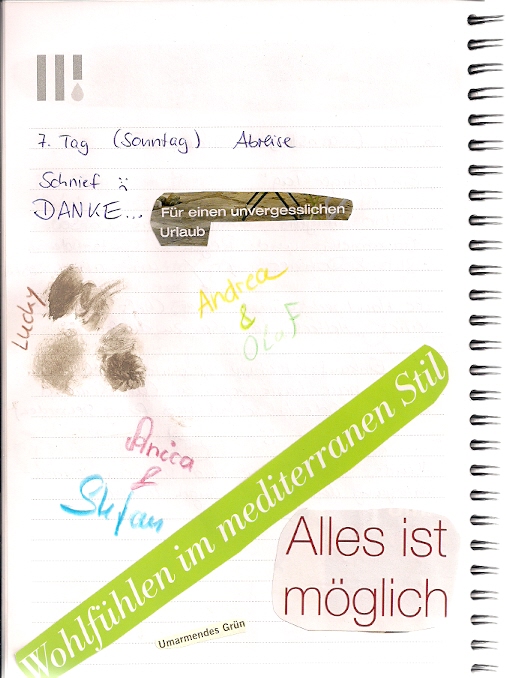 7. Tag (Sonntag) Abreise
Schnief :(
DANKE...
Für einen unvergesslichen
Urlaub
Lucky
Andrea
&
Olaf
Anica
&
Stefan
Wohlfühlen im mediterranen Stil
Alles ist
möglich
Umarmendes Grün